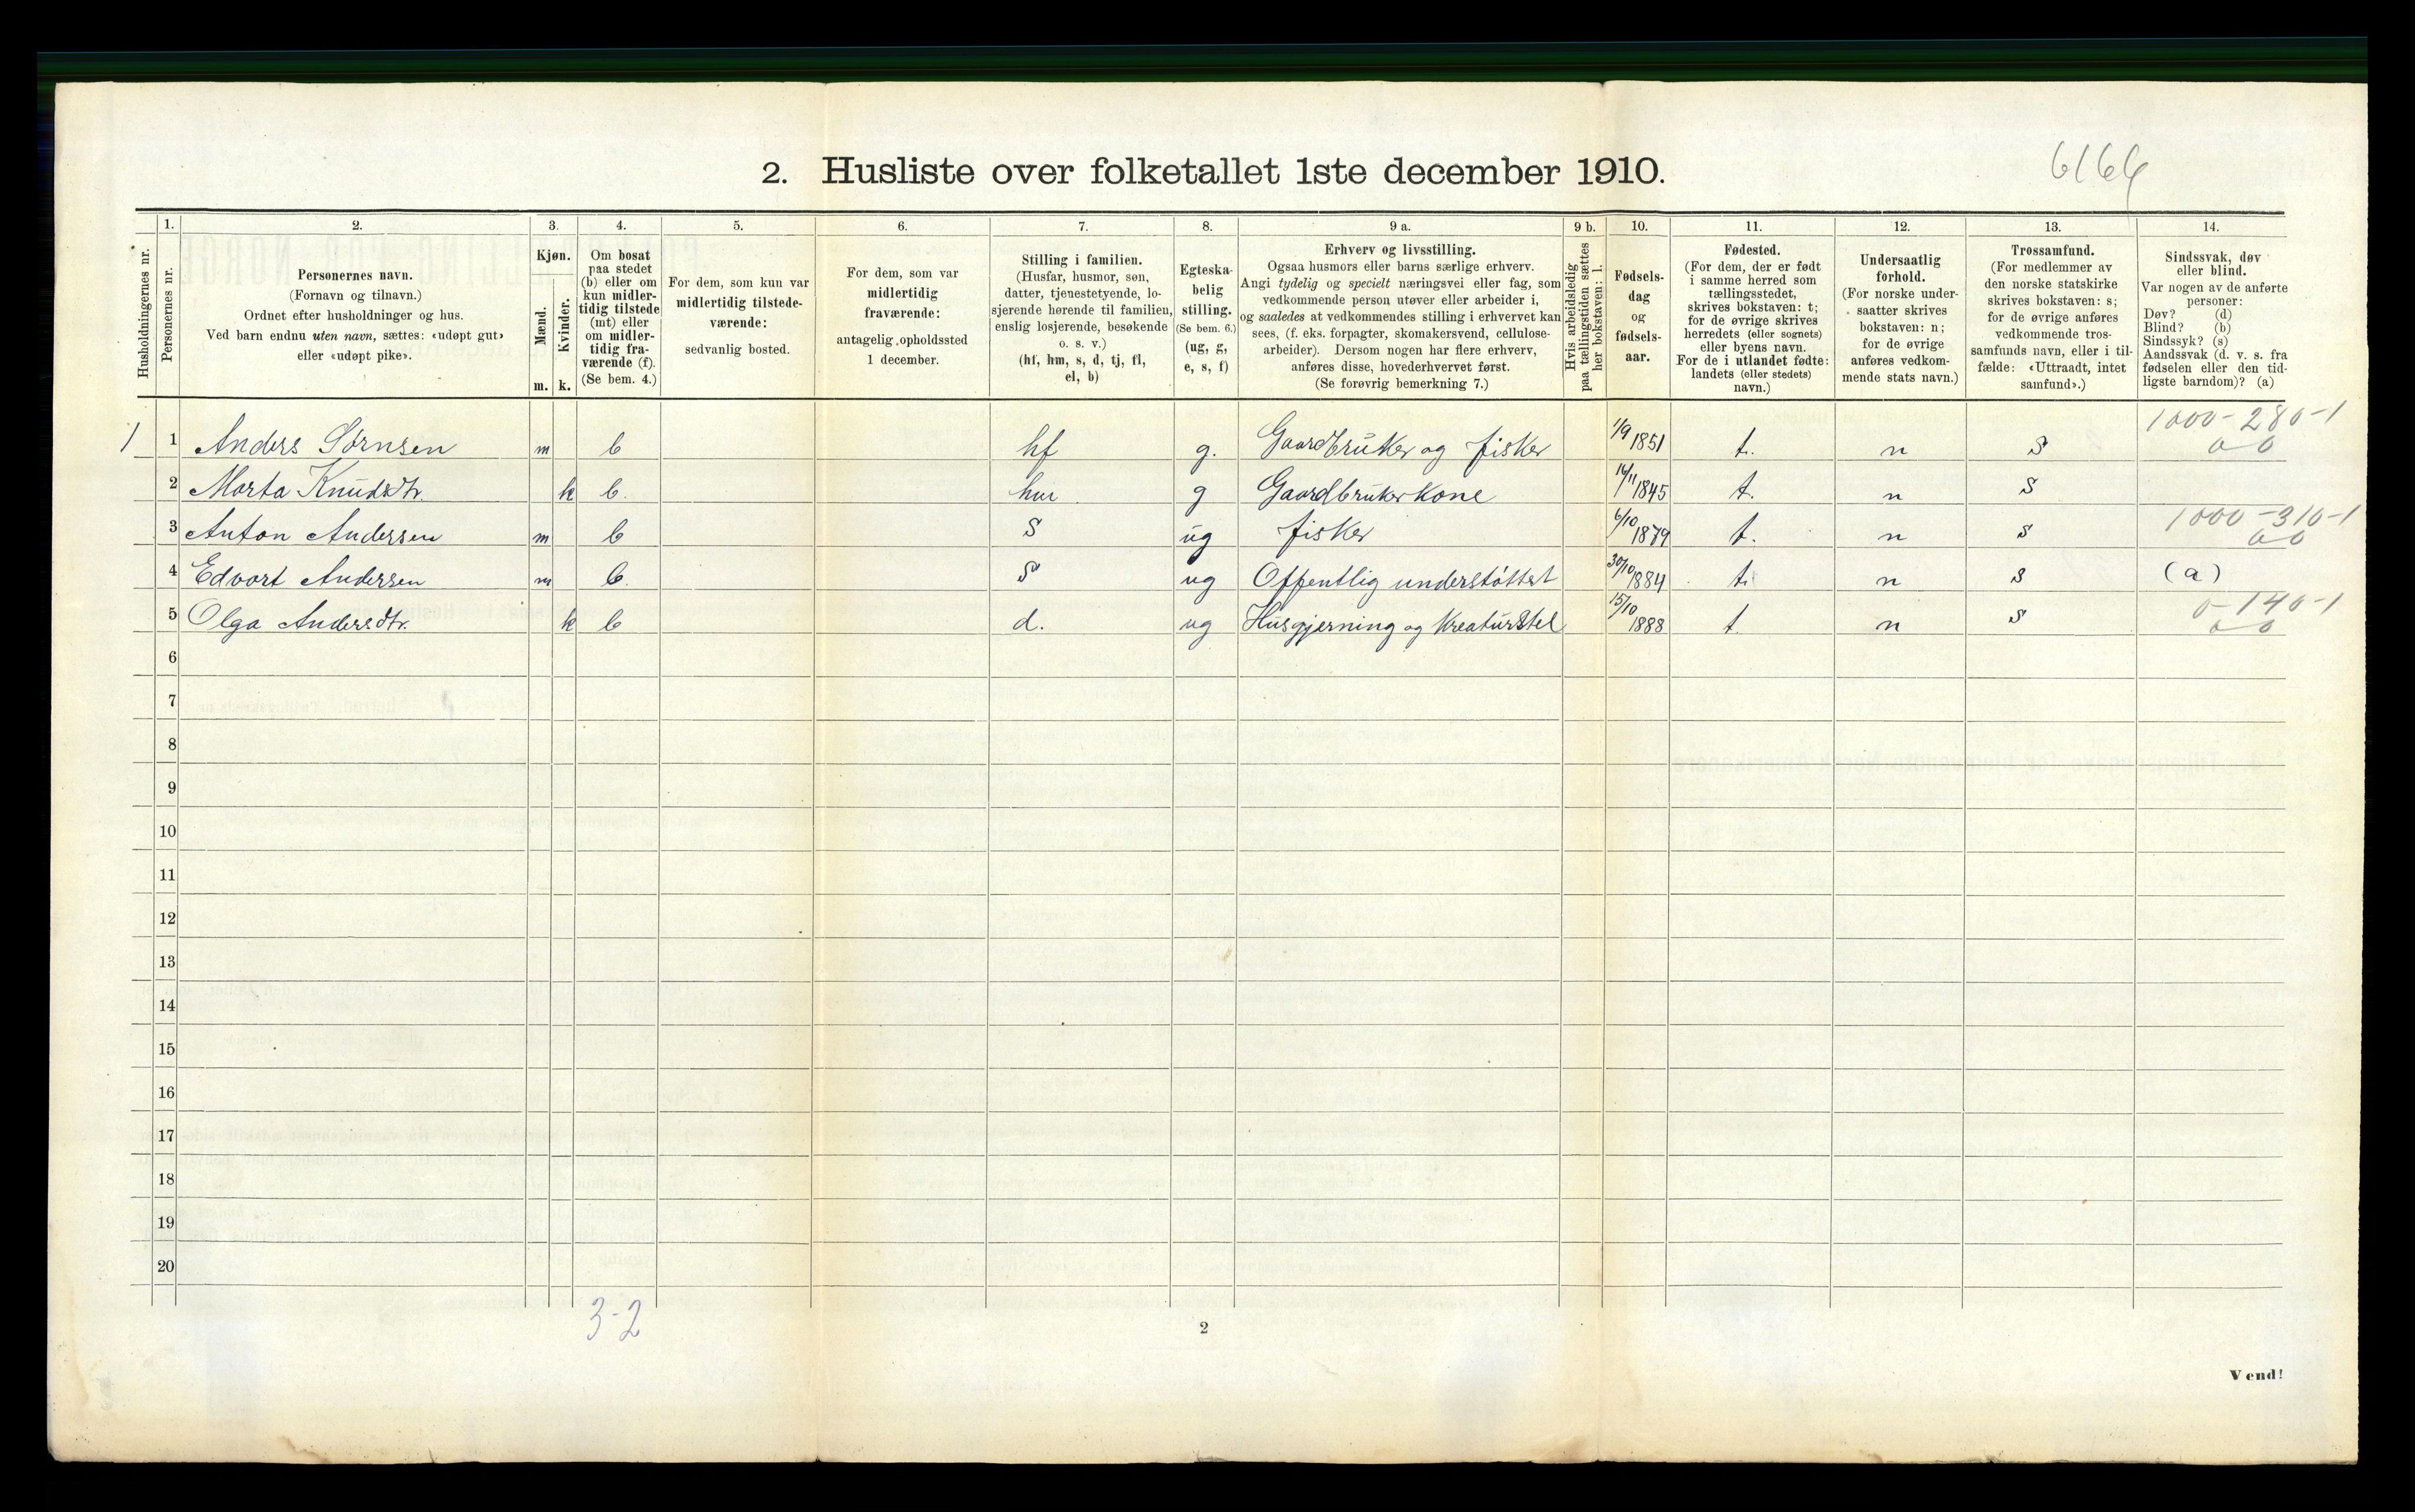 6166
2. Husliste over folketallet 1ste december 1910.
Husholdningernes nr.
1.
Personernes nr.
2.
Personernes navn.
(Fornavn og tilnavn.)
Ordnet efter husholdninger og hus.
Ved barn endnu uten navn, sættes: «udøpt gut»
eller «udøpt pike».
3.
Kjøn.
Mænd.
Kvinder.
m. k.
4.
Om bosat
paa stedet
(b) eller om
kun midler-
tidig tilstede
(mt) eller
om midler-
tidig fra-
værende (f).
(Se bem. 4.)
5.
For dem, som kun var
midlertidig tilstede-
værende:
sedvanlig bosted.
6.
For dem, som var
midlertidig
fraværende:
antagelig opholdssted
1 december.
7.
Stilling i familien.
(Husfar, husmor, søn,
datter, tjenestetyende, lo-
sjerende hørende til familien,
enslig losjerende, besøkende
o. s. v.)
(hf, hm, s, d, tj, fl,
el, b)
8.
Egteska-
belig
stilling.
(Se bem. 6.)
(ug, g,
e, s, f)
9 a.
Erhverv og livsstilling.
Ogsaa husmors eller barns særlige erhverv.
Angi tydelig og specielt næringsvei eller fag, som
vedkommende person utøver eller arbeider i,
og saaledes at vedkommendes stilling i erhvervet kan
sees, (f. eks. forpagter, skomakersvend, cellulose-
arbeider). Dersom nogen har flere erhverv,
anføres disse, hovederhvervet først.
(Se forøvrig bemerkning 7.)
9 b.
Hvis arbeidsledig
paa tællingstiden sættes
her bokstaven: l.
10.
Fødsels-
dag
og
fødsels-
aar.
11.
Fødested.
(For dem, der er født
i samme herred som
tællingsstedet,
skrives bokstaven: t;
for de øvrige skrives
herredets (eller sognets)
eller byens navn.
For de i utlandet fødte:
landets (eller stedets)
navn.)
12.
Undersaatlig
forhold.
(For norske under-
saatter skrives
bokstaven: n;
for de øvrige
anføres vedkom-
mende stats navn.)
13.
Trossamfund.
(For medlemmer av
den norske statskirke
skrives bokstaven: s;
for de øvrige anføres
vedkommende tros-
samfunds navn, eller i til-
fælde: «Uttraadt, intet
samfund».)
14.
Sindssvak, døv
eller blind.
Var nogen av de anførte
personer:
Døv? (d)
Blind? (b)
Sindssyk? (s)
Aandssvak (d. v. s. fra
fødselen eller den tid-
ligste barndom)? (a)
1 1 Anders Sörnsen m b hf g. Gaardbruker og fisker 1/9 1851 t. n S 1000-280-1
0-0
2 Marta Knudsdtr. k b. hm g Gaardbruker kone 14/11 1845 t. n S
3 Anton Andersen m b S ug fisker 6/10 1879 t. n S 1000-310-1
0-0
4 Edvart Andersen m b. S ug Offentlig understöttet 30/10 1884 t. n S (a)
5 Olga Andersdtr. k b d. ug Husgjerning og Kreaturstel 15/10 1888 t n S 0-140-1
0-0
6
7
8
9
10
11
12
13
14
15
16
17
18
19
20
3-2
2
Vend!